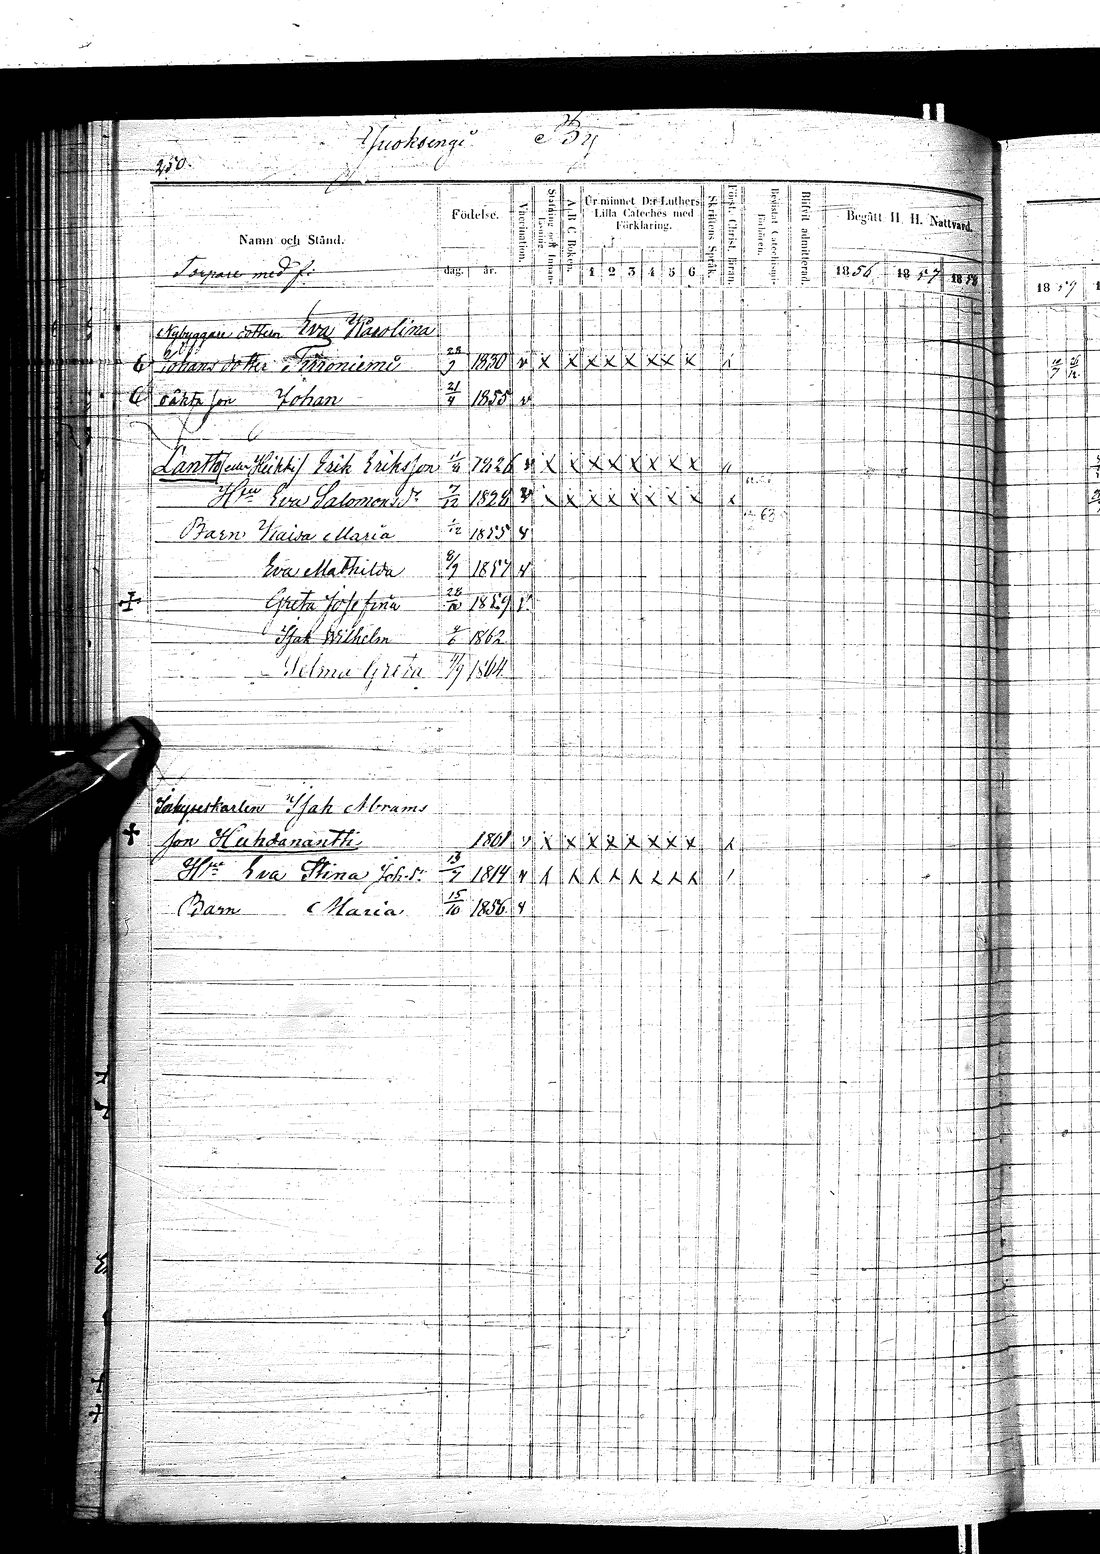 Juoksengi By
250.
Namn och Stånd.
Födelse.
dag. år.
Vaccination.
Stafning och Innan-läsning.
A. B. C. Boken.
Ur minnet D:r Luthers Lilla Cateches med Förklaring.
1 2 3 4 5 6
Skriftens Språk.
Först. Christ.läran.
Bevistat Catechismi-förhören.
Blifvit admitterad.
Begått H. H. Nattvard.
1856 1857 1858
1859
Torpare med f:
Nybyggare dottern Eva Karolina
6 Johans dotter 28/9 1830 v x x x x x x x x
6 oäkta son Johan 21/4 1855 v
Lantto (eller Heikki) Erik Eriksson 1826 v x x x x x x x x
Hru Eva Salomonsdr 7/12 1828 v x x x x x x x x
63
Barn Kaisa Maria 1/12 1855 v
Eva Mathilda 8/9 1857 v
Greta Josefina 28/10 1859 v
Isak Wilhelm 1862
Selma Greta 11/9 1864
Inhyseskarlen Isak Abrams
son Huhdanantti 1801 v x x x x x x x x
Hru Eva Stina Joh.dr 13/7 1814 v
Barn Maria 15/10 1856 v